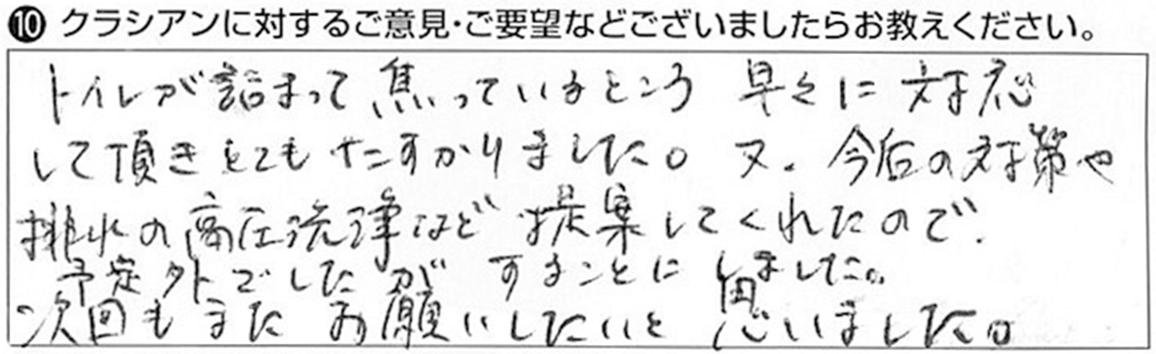 ⑩ クラシアンに対するご意見・ご要望などございましたらお教えください。
トイレが詰まって焦っているところ 早々に対応
して頂きとてもたすかりました。又、今后の対策や
排水の高圧洗浄など提案してくれたので、
予定外でしたが することにしました。
次回もまたお願いしたいと思いました。